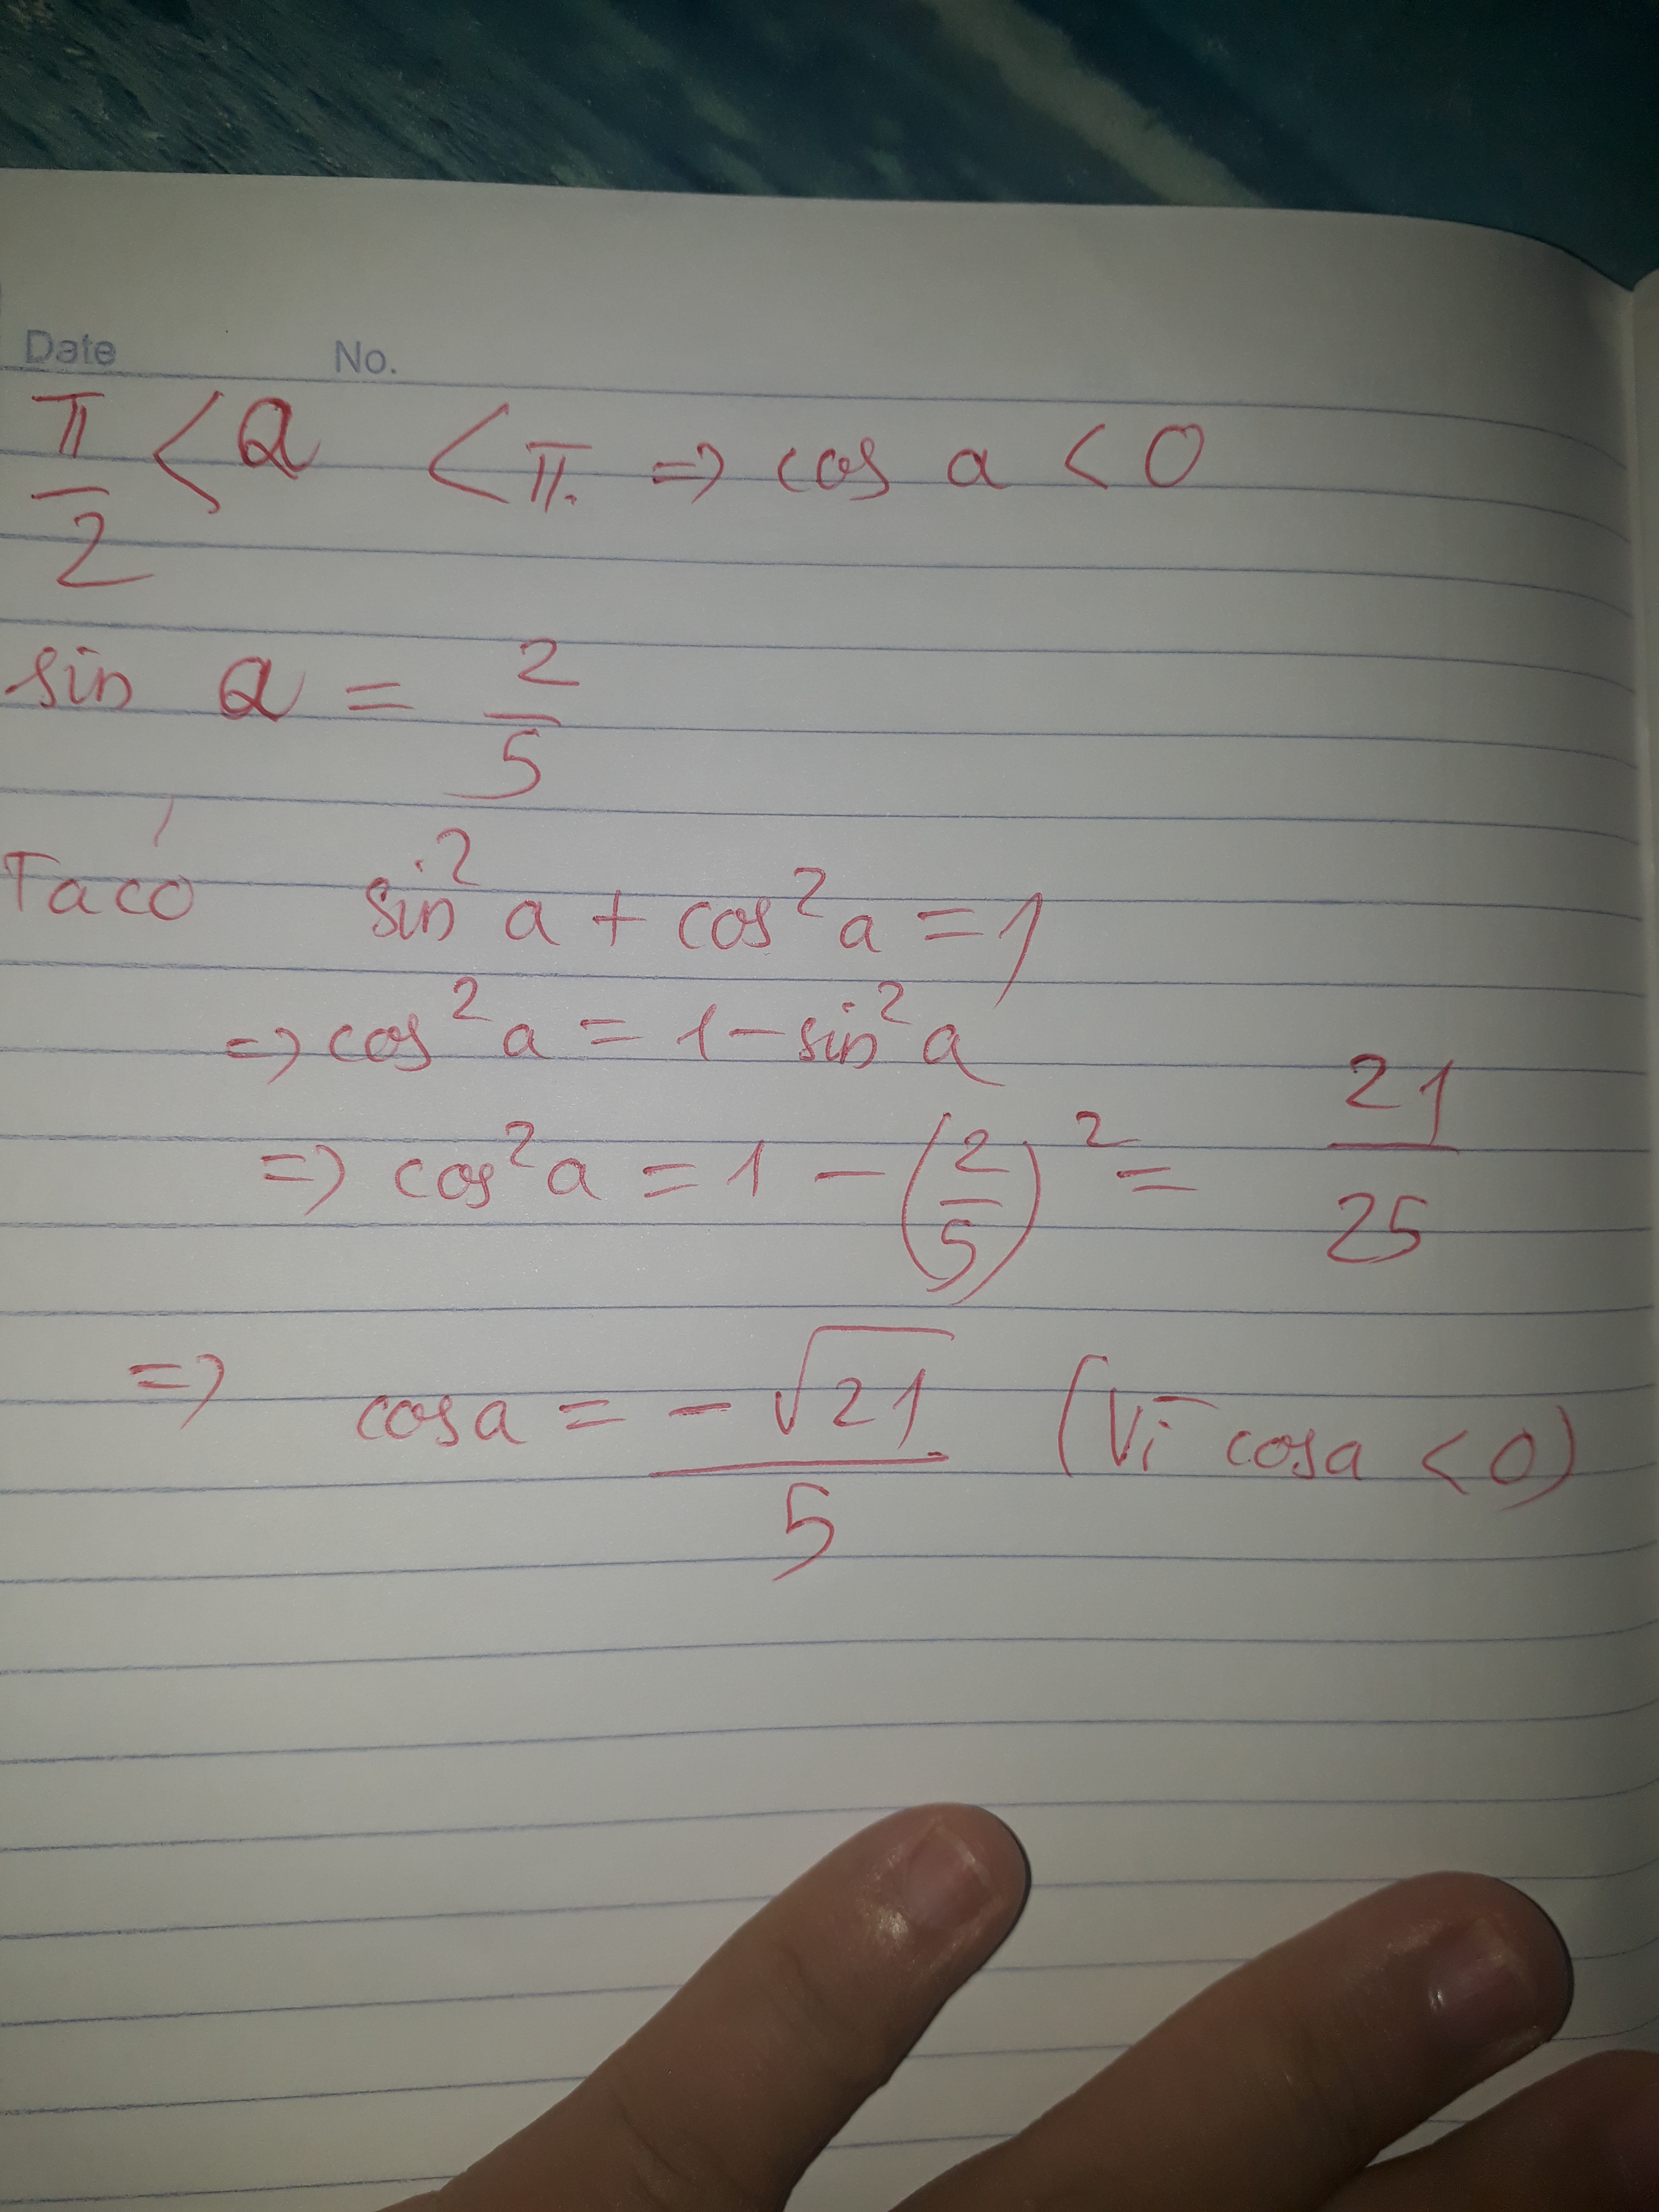 Date No.
π/2 < a < π. => cos a < 0
sin a = 2/5
Ta có sin² a + cos² a = 1
=> cos² a = 1 - sin² a
=> cos² a = 1 - (2/5)² = 21/25
=> cos a = -√21/5 (Vì cos a < 0)